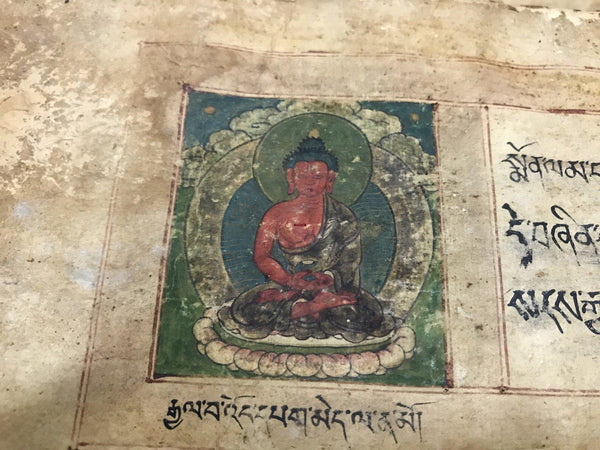 རྒྱལ་བ་འོད་དཔག་མེད་ལ་ན་མོ
སྨོན་ལམ་
དེ་བཞིན་
སངས་